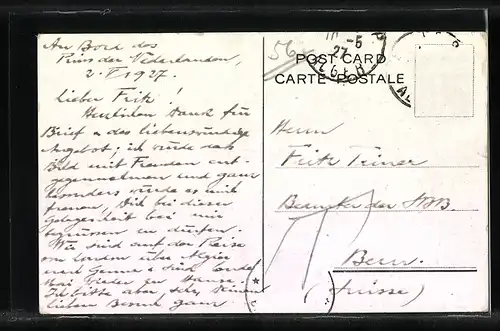 An Bord des
Prins der Nederlanden,
2. V 1927.
Lieber Fritz!
Herzlichen Dank für
Brief & das liebenswürdige
Angebot; ich würde das
Bild mit Freuden ent-
gegennehmen und ganz
besonders würde es mich
freuen, Dich bei dieser
Gelegenheit bei mir
begrüssen zu dürfen.
Wir sind auf der Reise
von London über Algier
nach Genua & sind
wieder zu Hause.
Ich bitte also
lieben Besuch ganz
POST CARD
CARTE POSTALE
Herrn
Fritz
Beamter der SBB.
Bern.
(Suisse)